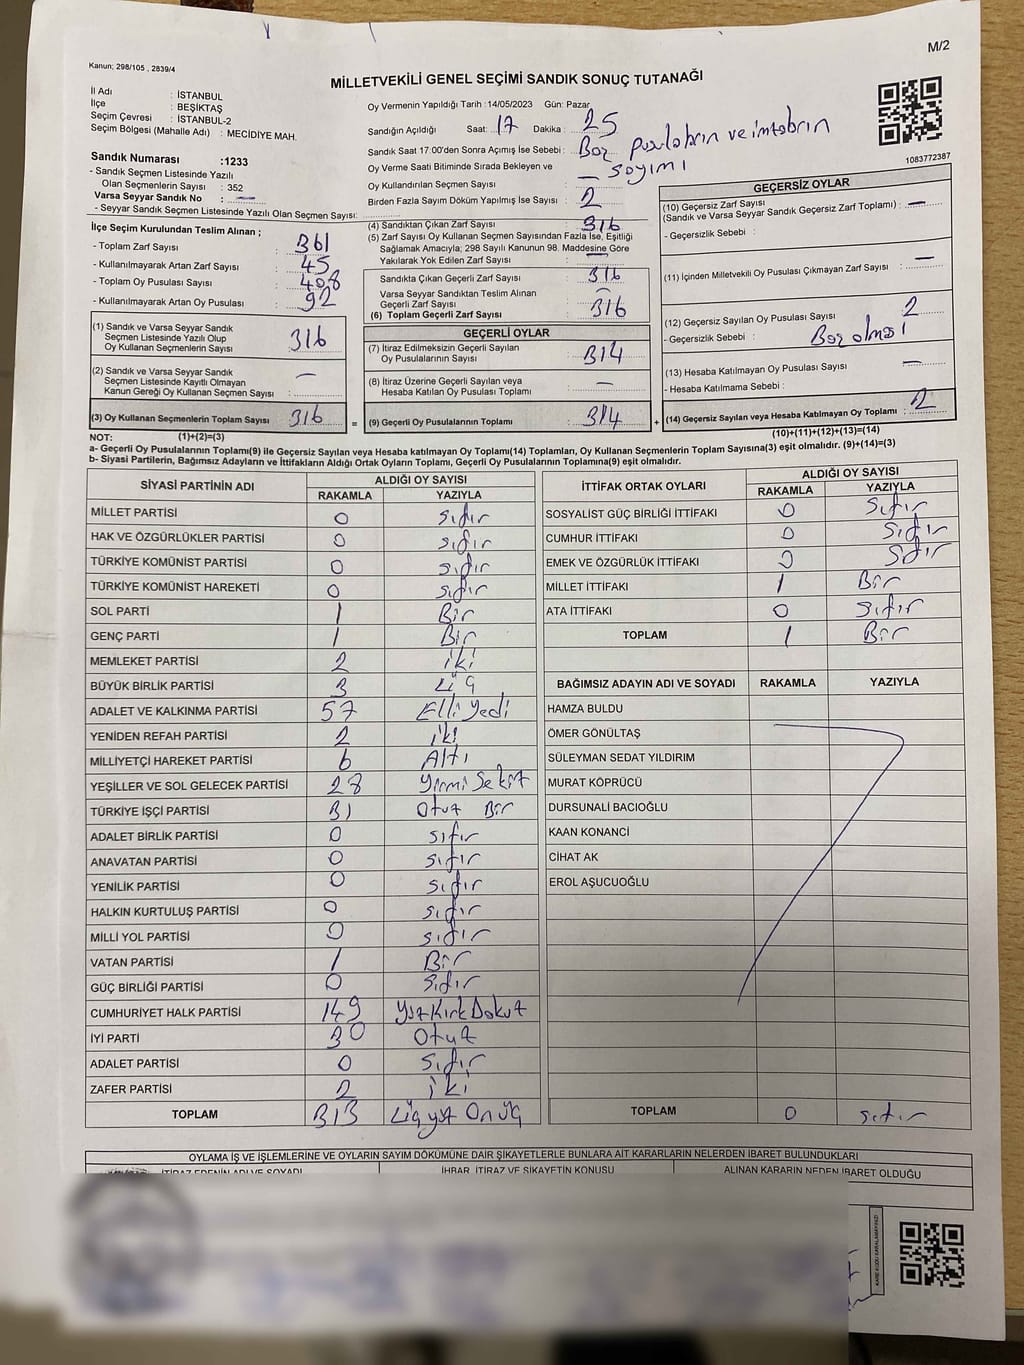 M/2
Kanun; 298/105 , 2839/4
MİLLETVEKİLİ GENEL SEÇİMİ SANDIK SONUÇ TUTANAĞI
İl Adı : İSTANBUL
İlçe : BEŞİKTAŞ
Seçim Çevresi : İSTANBUL-2
Seçim Bölgesi (Mahalle Adı) : MECİDİYE MAH.
Sandık Numarası :1233
- Sandık Seçmen Listesinde Yazılı
Olan Seçmenlerin Sayısı : 352
Varsa Seyyar Sandık No : —
- Seyyar Sandık Seçmen Listesinde Yazılı Olan Seçmen Sayısı:
İlçe Seçim Kurulundan Teslim Alınan ;
- Toplam Zarf Sayısı : 361
- Kullanılmayarak Artan Zarf Sayısı : 45
- Toplam Oy Pusulası Sayısı : 408
- Kullanılmayarak Artan Oy Pusulası : 92
(1) Sandık ve Varsa Seyyar Sandık
Seçmen Listesinde Yazılı Olup
Oy Kullanan Seçmenlerin Sayısı : 316
(2) Sandık ve Varsa Seyyar Sandık
Seçmen Listesinde Kayıtlı Olmayan
Kanun Gereği Oy Kullanan Seçmen Sayısı : —
(3) Oy Kullanan Seçmenlerin Toplam Sayısı : 316
Oy Vermenin Yapıldığı Tarih :14/05/2023 Gün: Pazar
Sandığın Açıldığı Saat: 17 Dakika : 25
Sandık Saat 17:00'den Sonra Açımış İse Sebebi : Boş pusulaların ve
Oy Verme Saati Bitiminde Sırada Bekleyen ve sayımı
Oy Kullandırılan Seçmen Sayısı : —
Birden Fazla Sayım Döküm Yapılmış İse Sayısı : 2
(4) Sandıktan Çıkan Zarf Sayısı : 316
(5) Zarf Sayısı Oy Kullanan Seçmen Sayısından Fazla İse, Eşitliği
Sağlamak Amacıyla; 298 Sayılı Kanunun 98. Maddesine Göre
Yakılarak Yok Edilen Zarf Sayısı : —
Sandıkta Çıkan Geçerli Zarf Sayısı : 316
Varsa Seyyar Sandıktan Teslim Alınan
Geçerli Zarf Sayısı : —
(6) Toplam Geçerli Zarf Sayısı : 316
GEÇERLİ OYLAR
(7) İtiraz Edilmeksizin Geçerli Sayılan
Oy Pusulalarının Sayısı : 314
(8) İtiraz Üzerine Geçerli Sayılan veya
Hesaba Katılan Oy Pusulaları Toplamı : —
= (9) Geçerli Oy Pusulalarının Toplamı : 314 +
1083772387
GEÇERSİZ OYLAR
(10) Geçersiz Zarf Sayısı
(Sandık ve Varsa Seyyar Sandık Geçersiz Zarf Toplamı) : —
- Geçersizlik Sebebi :
(11) İçinden Milletvekili Oy Pusulası Çıkmayan Zarf Sayısı : —
(12) Geçersiz Sayılan Oy Pusulası Sayısı : 2
- Geçersizlik Sebebi : Boş olması
(13) Hesaba Katılmayan Oy Pusulası Sayısı : —
- Hesaba Katılmama Sebebi :
(14) Geçersiz Sayılan veya Hesaba Katılmayan Oy Toplamı : 2
NOT: (1)+(2)=(3) (10)+(11)+(12)+(13)=(14)
a- Geçerli Oy Pusulalarının Toplamı(9) ile Geçersiz Sayılan veya Hesaba katılmayan Oy Toplamı(14) Toplamları, Oy Kullanan Seçmenlerin Toplam Sayısına(3) eşit olmalıdır. (9)+(14)=(3)
b- Siyasi Partilerin, Bağımsız Adayların ve İttifakların Aldığı Ortak Oyların Toplamı, Geçerli Oy Pusulalarının Toplamına(9) eşit olmalıdır.
SİYASİ PARTİNİN ADI ALDIĞI OY SAYISI
RAKAMLA YAZIYLA
MİLLET PARTİSİ 0 sıfır
HAK VE ÖZGÜRLÜKLER PARTİSİ 0 sıfır
TÜRKİYE KOMÜNİST PARTİSİ 0 sıfır
TÜRKİYE KOMÜNİST HAREKETİ 0 sıfır
SOL PARTİ 1 Bir
GENÇ PARTİ 1 Bir
MEMLEKET PARTİSİ 2 iki
BÜYÜK BİRLİK PARTİSİ 3 üç
ADALET VE KALKINMA PARTİSİ 57 Elli yedi
YENİDEN REFAH PARTİSİ 2 iki
MİLLİYETÇİ HAREKET PARTİSİ 6 Altı
YEŞİLLER VE SOL GELECEK PARTİSİ 28 Yirmi Sekiz
TÜRKİYE İŞÇİ PARTİSİ 31 Otuz Bir
ADALET BİRLİK PARTİSİ 0 sıfır
ANAVATAN PARTİSİ 0 sıfır
YENİLİK PARTİSİ 0 sıfır
HALKIN KURTULUŞ PARTİSİ 0 sıfır
MİLLİ YOL PARTİSİ 0 sıfır
VATAN PARTİSİ 1 Bir
GÜÇ BİRLİĞİ PARTİSİ 0 sıfır
CUMHURİYET HALK PARTİSİ 149 Yüz Kırk Dokuz
İYİ PARTİ 30 Otuz
ADALET PARTİSİ 0 sıfır
ZAFER PARTİSİ 2 iki
TOPLAM 313 üçyüz On üç
İTTİFAK ORTAK OYLARI ALDIĞI OY SAYISI
RAKAMLA YAZIYLA
SOSYALİST GÜÇ BİRLİĞİ İTTİFAKI 0 sıfır
CUMHUR İTTİFAKI 0 sıfır
EMEK VE ÖZGÜRLÜK İTTİFAKI 0 sıfır
MİLLET İTTİFAKI 1 Bir
ATA İTTİFAKI 0 sıfır
TOPLAM 1 Bir
BAĞIMSIZ ADAYIN ADI VE SOYADI RAKAMLA YAZIYLA
HAMZA BULDU
ÖMER GÖNÜLTAŞ
SÜLEYMAN SEDAT YILDIRIM
MURAT KÖPRÜCÜ
DURSUNALİ BACIOĞLU
KAAN KONANCİ
CİHAT AK
EROL AŞUCUOĞLU
TOPLAM 0 sıfır
OYLAMA İŞ VE İŞLEMLERİNE VE OYLARIN SAYIM DÖKÜMÜNE DAİR ŞİKAYETLERLE BUNLARA AİT KARARLARIN NELERDEN İBARET BULUNDUKLARI
İTİRAZ EDENİN ADI VE SOYADI İHBAR, İTİRAZ VE ŞİKAYETİN KONUSU ALINAN KARARIN NEDEN İBARET OLDUĞU